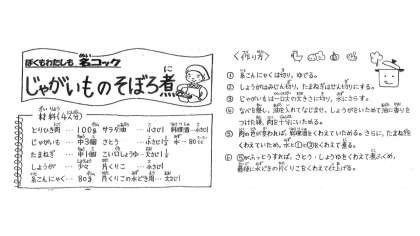 ぼくもわたしも 名コック
じゃがいものそぼろ煮
材料(4人分)
とりひき肉 … 100g サラダ油 … 小さじ1 料理酒…小さじ1
じゃがいも … 中3個 さとう … 小さじ1½ 水…80cc
たまねぎ … 中1個 こい口しょうゆ…大さじ1½
しょうが … 少々 片くりこ … 小さじ1
糸こんにゃく…80g 片くりこの水どき用…大さじ1
〈作り方〉
① 糸こんにゃくは切り、ゆでる。
② しょうがはみじん切り、たまねぎはせん切りにする。
③ じゃがいもは一口大の大きさに切り、水にさらす。
④ なべを熱し、油を入れてなじませ、しょうがをいためて油に香りを
つけた後、肉を十分にいためる。
⑤ 肉の色が変われば、料理酒をくわえていためる。さらに、たまねぎを
くわえていため、水と①と③をくわえて煮る。
⑥ ⑤がふっとうすれば、さとう・しょうゆをくわえて煮ふくめ、
最後に水どきの片くりこをくわえて仕上げる。